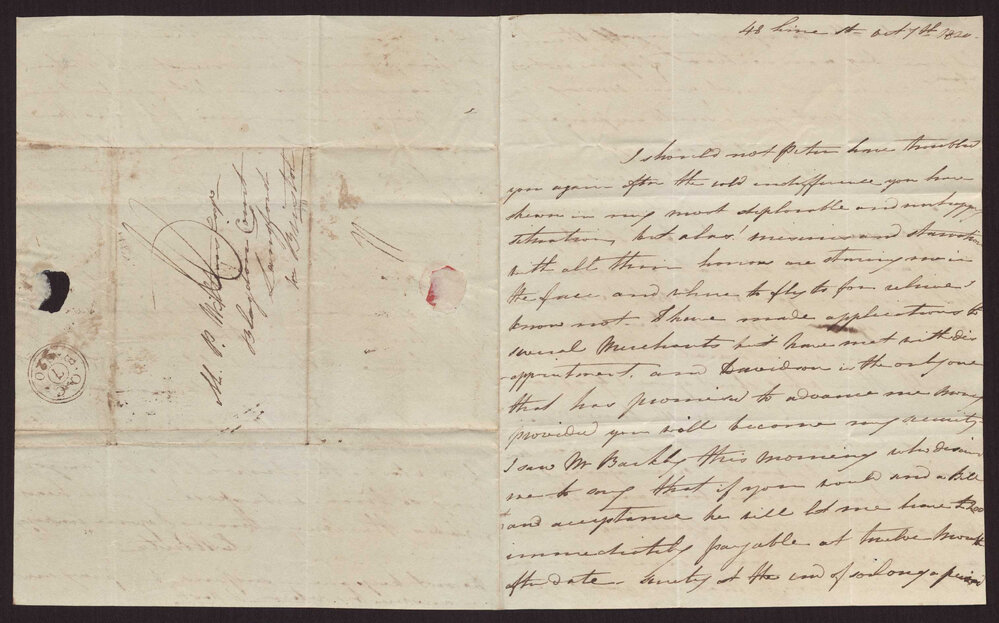 48 Lime St Oct 7th 1820.
I should not Peter have troubled
you again after the cold indifference you have
shewn in my most deplorable and unhappy
situation, but alas! miseries and starvation
with all their horrors are staring me in
the face, and where to fly to for relief I
know not. I have made applications to
several Merchants but have met with dis
-appointment, and Davidson is the only one
that has promised to advance me money
provided you will become my security.
I saw Mr Barkly this morning who desired
me to say that if you would send a Bill
and acceptance he will let me have £200
immediately payable at twelve Months
after date. Surely at the end of so long a period
Mr. P.
Blagdon Court
Langford
nr Bristol
11
OC
7
820